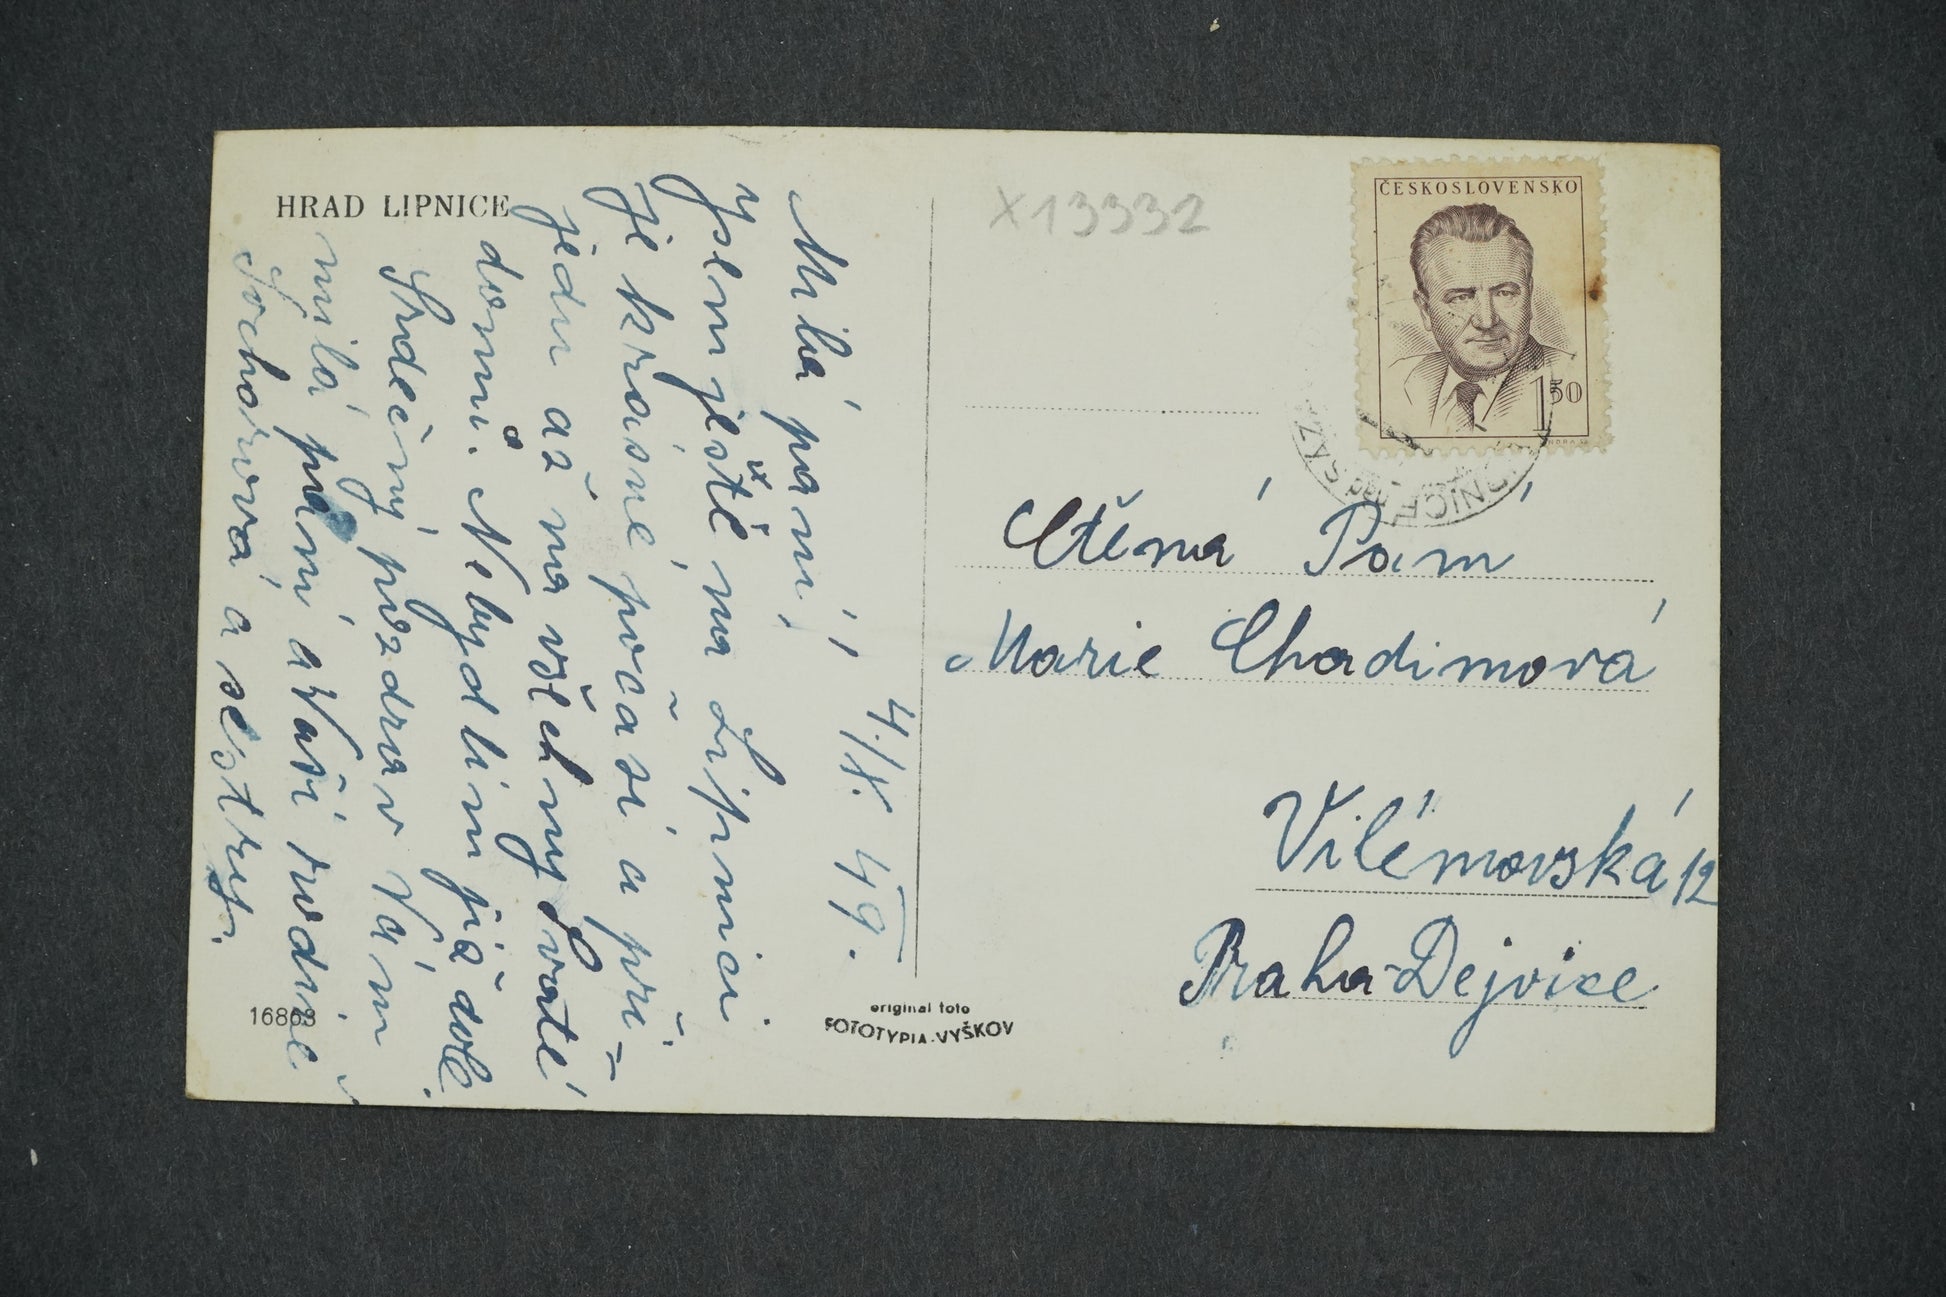 HRAD LIPNICE
4./X. 49.
Milá paní,
jsem ještě na Lipnici.
Je krásné počasí a při-
jedu až na všechny Svaté
domů. Nebydlím již dole.
Srdečný pozdrav Vám
milá paní a Vaší rodině
Sochorová a sestry.
16868
original foto
FOTOTYPIA-VYŠKOV
X13332
ČESKOSLOVENSKO
1 50
LIPNICE nad SÁZ
Ctěná Paní
Marie Chadimová
Vilémovská 12
Praha-Dejvice